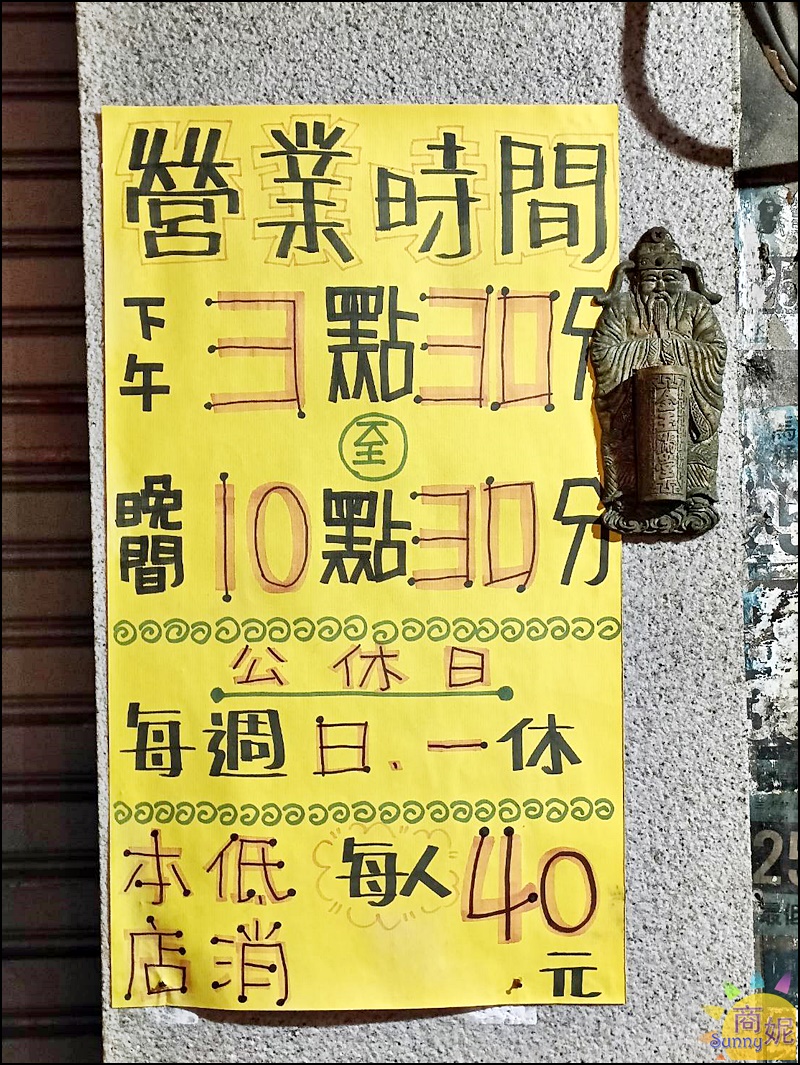 營業時間
下午3點30分
至
晚間10點30分
公休日
每週日.一休
本店低消 每人40元
商妮
Sunny